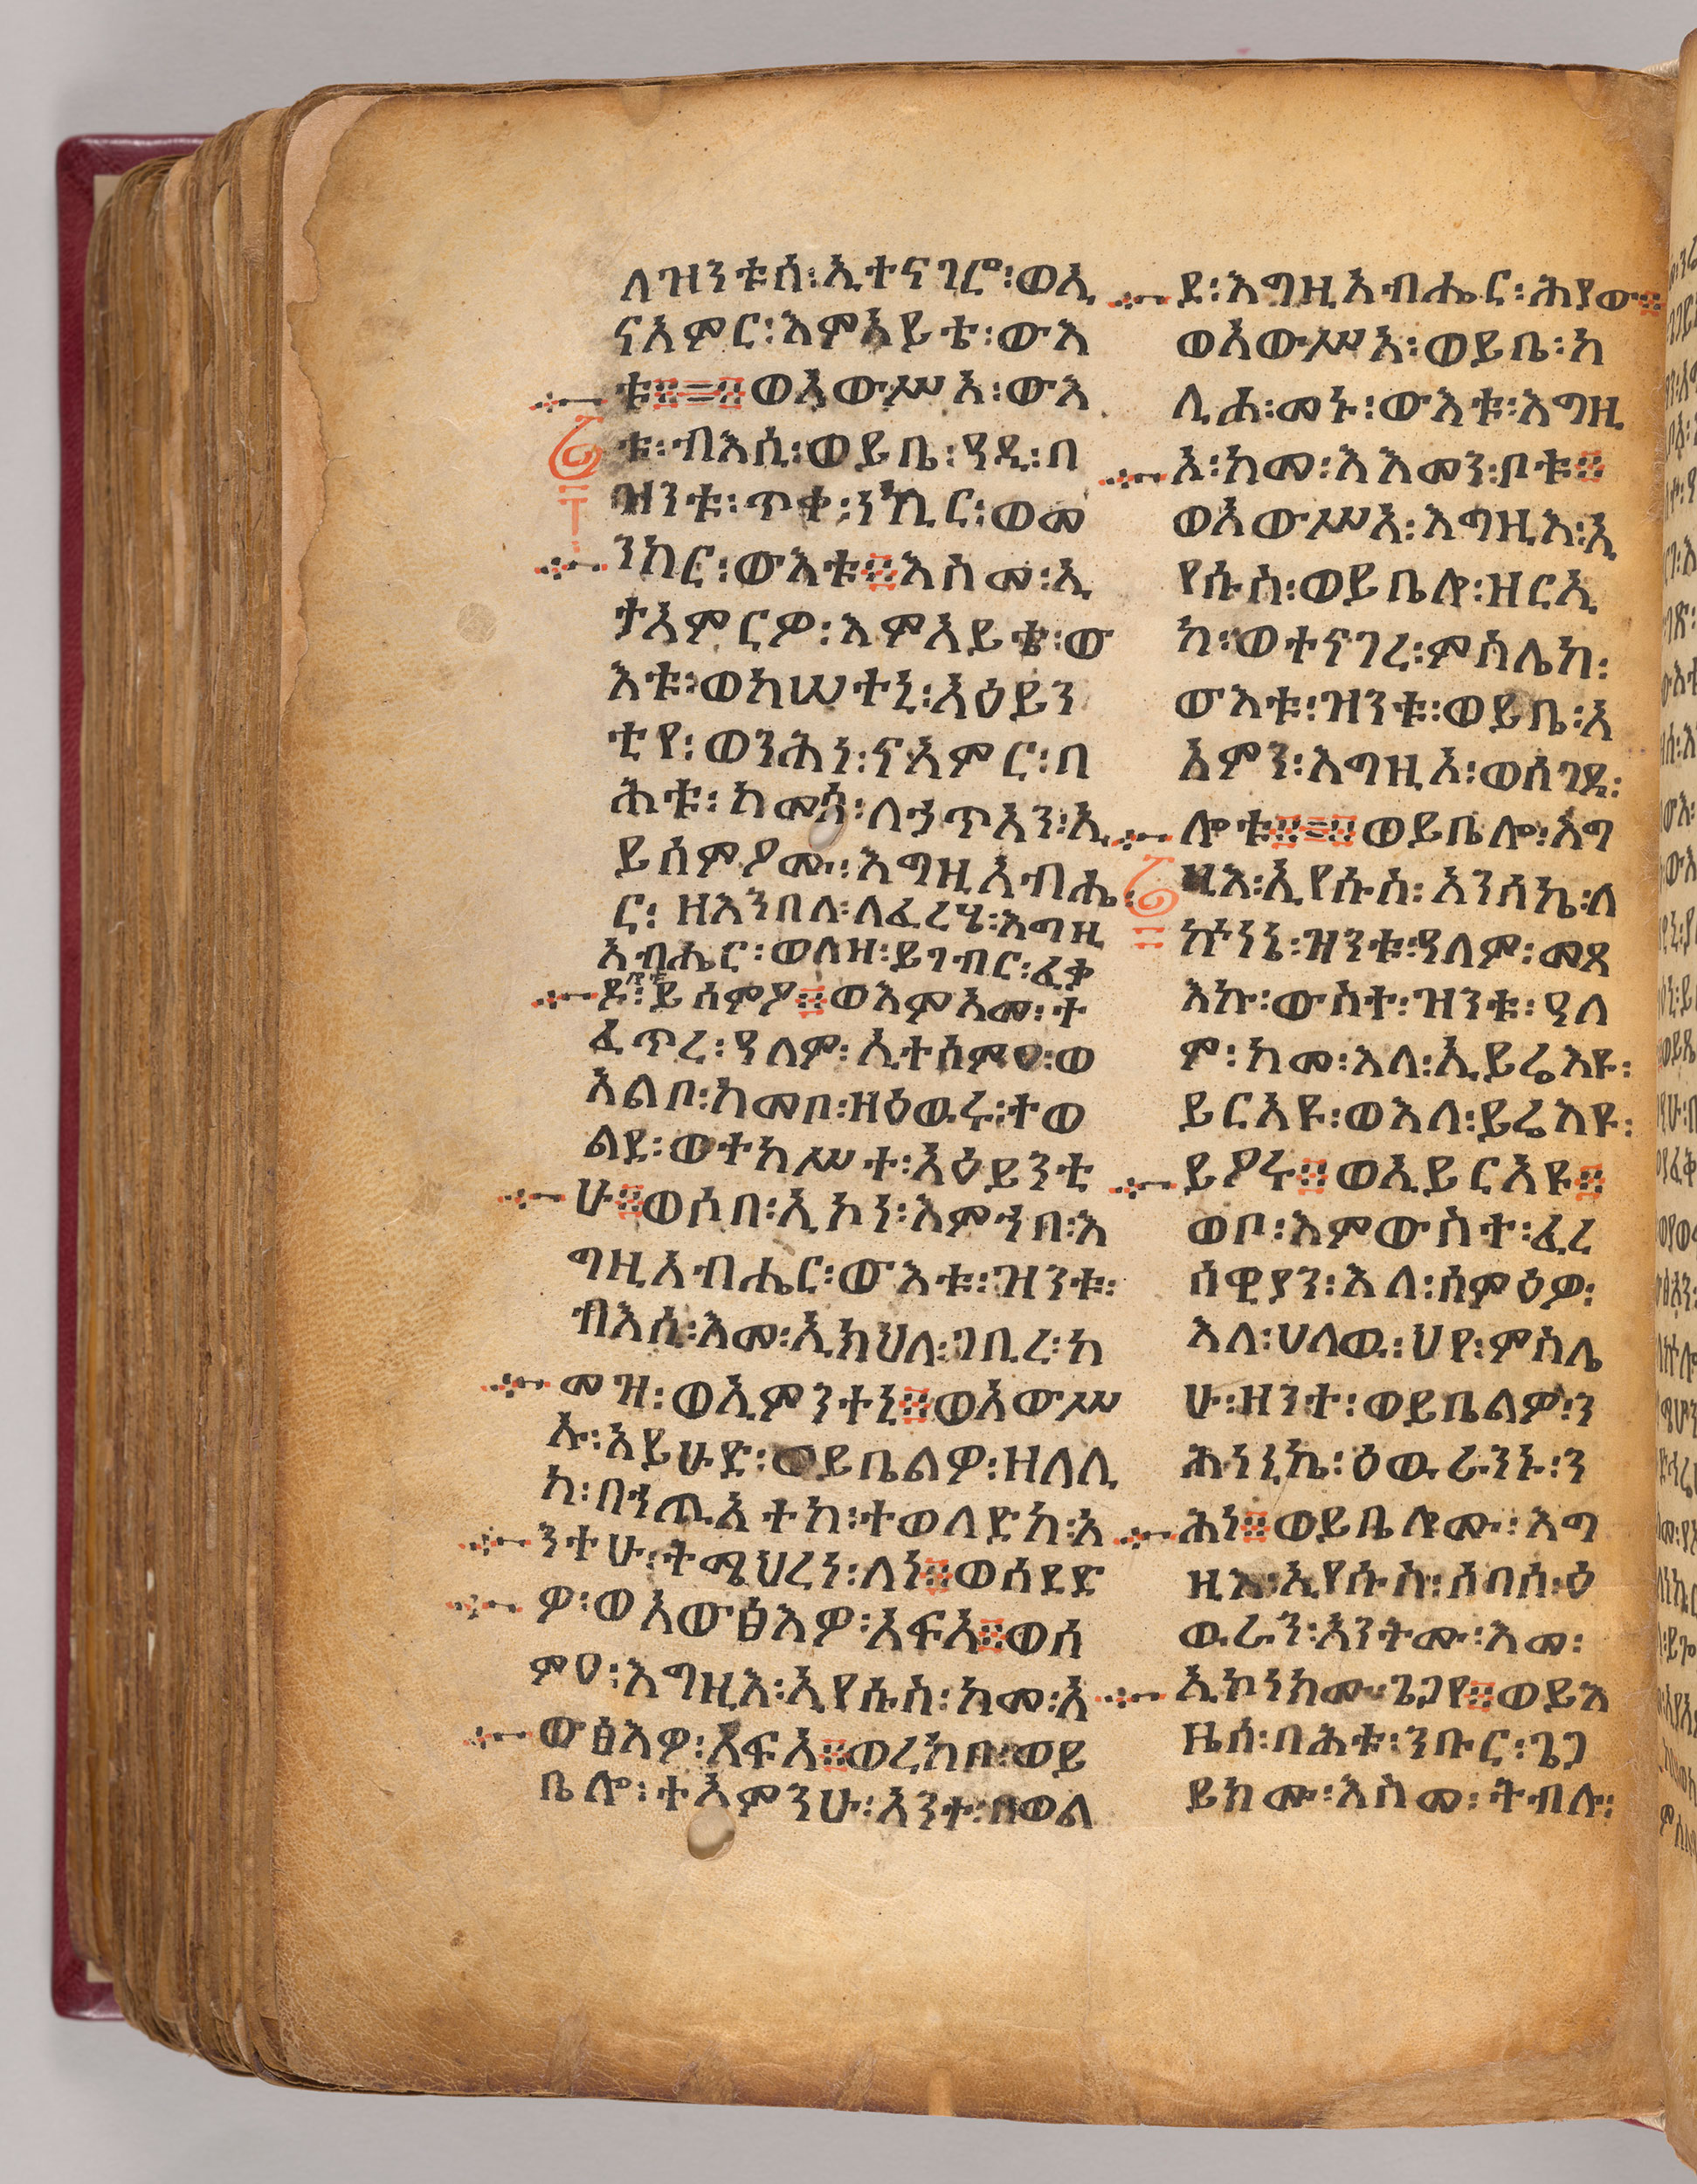 ለዝንቱሰ፡ኢተናገሮ፡ወኢ
ናአምር፡እምአይቴ፡ውእ
ቱ፨=፨ወአውሥአ፡ውእ
ቱ፡ብእሲ፡ወይቤ፡ዓዲ፡በ
ዝንቱ፡ጥቀ፡ነኪር፡ወመ
ንክር፡ውእቱ፨እስመ፡ኢ
ታአምርዎ፡እምአይቴ፡ው
እቱ፡ወከሠተኒ፡አዕይን
ትየ፡ወንሕነ፡ናአምር፡በ
ሕቱ፡ከመሰ፡ለኃጥአን፡ኢ
ይሰምዖሙ፡እግዚአብሔ
ር፡ዘእንበለ፡ለፈረሄ፡እግዚ
አብሔር፡ወለዝ፡ይገብር፡ፈቃ
ዶ፡ሎቱ፡ይሰምዖ፨ወእምአመ፡ተ
ፈጥረ፡ዓለም፡ኢተሰምዐ፡ወ
አልቦ፡ከመቦ፡ዘዕዉሩ፡ተወ
ልደ፡ወተከሥተ፡አዕይንቲ
ሁ፨ወሶበ፡ኢኮነ፡እምኀበ፡እ
ግዚአብሔር፡ውእቱ፡ዝንቱ፡
ብእሲ፡እመ፡ኢክህለ፡ገቢረ፡ከ
መዝ፡ወኢምንተኒ፨ወአውሥ
ኡ፡አይሁድ፡ወይቤልዎ፡ዘለሊ
ከ፡በኀጢአትከ፡ተወለድከ፡አ
ንተሁ፡ትሜህረነ፡ለነ፨ወሰደድ
ዎ፡ወአውፅእዎ፡አፍአ፨ወሰ
ምዐ፡እግዚእ፡ኢየሱስ፡ከመ፡አ
ውፅእዎ፡አፍአ፨ወረከቦ፡ወይ
ቤሎ፡ተአምንሁ፡አንተ፡በወል
ደ፡እግዚአብሔር፡ሕያው፨
ወአውሥአ፡ወይቤ፡ከ
ሊሐ፡መኑ፡ውእቱ፡እግዚ
አ፡ከመ፡እእመን፡ቦቱ፨
ወአውሥአ፡እግዚእ፡ኢ
የሱስ፡ወይቤሎ፡ዘርኢ
ከ፡ወተናገረ፡ምስሌከ፡
ውእቱ፡ዝንቱ፡ወይቤ፡አ
አምን፡እግዚእ፡ወሰገደ፡
ሎቱ፨=፨ወይቤሎ፡እግ
ዚእ፡ኢየሱስ፡አንሰኬ፡ለ
ኵነኔ፡ዝንቱ፡ዓለም፡መጻ
እኩ፡ውስተ፡ዝንቱ፡ዓለ
ም፡ከመ፡እለ፡ኢይሬእዩ፡
ይርአዩ፡ወእለ፡ይሬእዩ፡
ይዖሩ፨ወኢይርአዩ፨
ወቦ፡እምውስተ፡ፈሪ
ሰዊያን፡እለ፡ሰምዕዎ፡
እለ፡ሀለዉ፡ህየ፡ምስሌ
ሁ፡ዘንተ፡ወይቤልዎ፡ን
ሕነኒኬ፡ዕዉራንኑ፡ን
ሕነ፨ወይቤሎሙ፡እግ
ዚእ፡ኢየሱስ፡ሰበሰ፡ዕ
ዉራን፡አንትሙ፡እመ፡
ኢኮነክሙ፡ጌጋየ፨ወይእ
ዜሰ፡በሕቱ፡ንቡር፡ጌጋ
ይክሙ፡እስመ፡ትብሉ፡